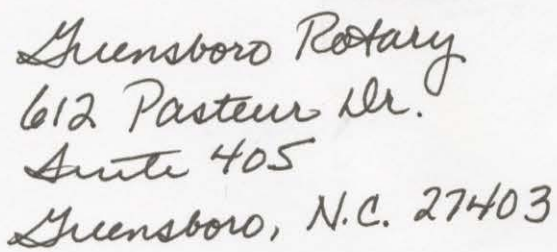 Greensboro Rotary
612 Pasteur Dr.
Suite 405
Greensboro, N.C. 27403